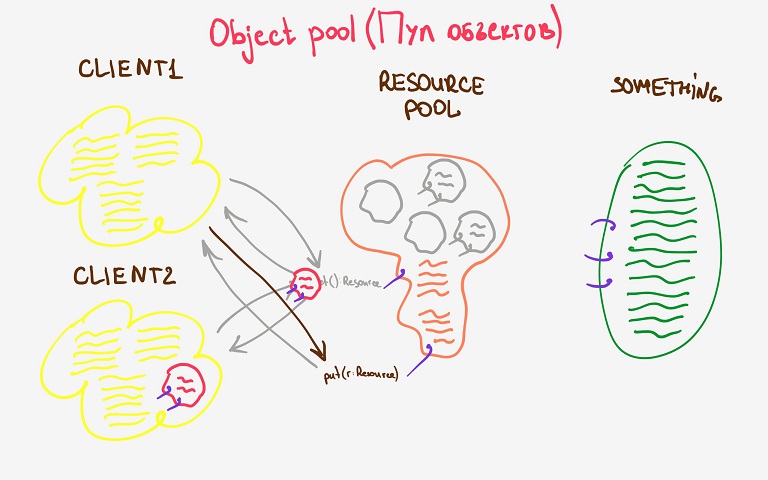 Object pool (Пул объектов)
CLIENT1
RESOURCE
POOL
SOMETHING
CLIENT2
t():Resource
put(r:Resource)